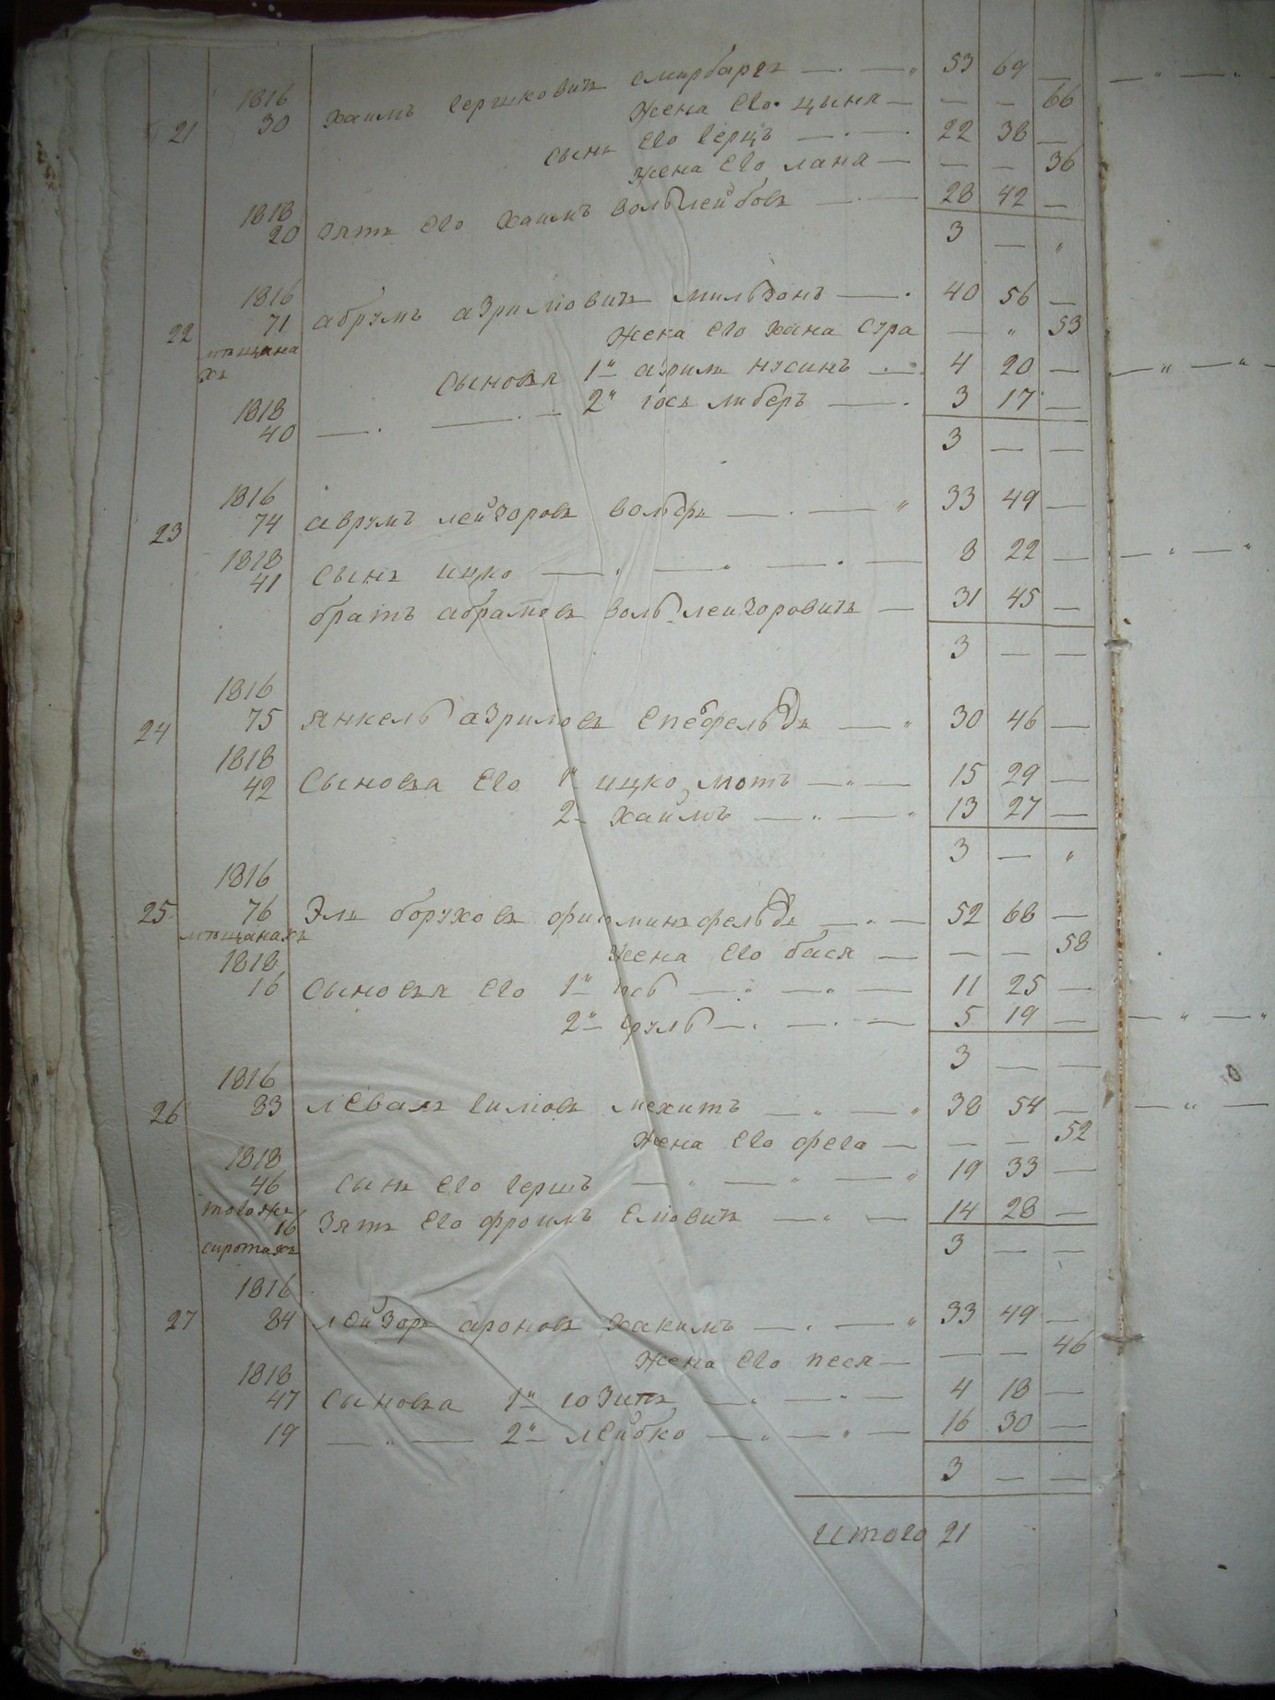 1816
21 30 Хаимъ Гершковичъ 53 69 —
Жена Его Цыня — — — 66
Сынъ Его Герцъ — 22 38 —
Жена Его Лана — — — 36
1818
20 Зять Его Хаимъ Вольф Лейбовъ — 28 42 —
3 — „
1816
22 71 Абрумъ Азриловичъ Мильзонъ — 40 56 —
мѣщана Жена Его Хана Сура — „ 53
хъ Сыновья 1й Азрилъ Нусинъ — 4 20 —
1818 2й Іось Либеръ — 3 17 —
40 — 3 — —
1816
23 74 Аврумъ Лейзоровъ Вольфъ — 33 49 —
1818
41 Сынъ Ицко — 8 22 —
братъ Абрамовъ Вольф Лейзоровичъ — 31 45 —
3 — —
1816
24 75 Янкель Азриловъ — 30 46 —
1818
42 Сыновья Его 1й Ицко Мотъ — 15 29 —
2й Хаимъ — 13 27 —
3 — „
1816
25 76 Эль Боруховъ — 52 68 —
мѣщанахъ Жена Его Бася — — — 58
1818
16 Сыновья Его 1й — 11 25 —
2й Сруль — 5 19 —
3 — —
1816
26 83 — 38 54 —
Жена Его Фега — — — 52
1818
46 Сынъ Его Гершъ — 19 33 —
тогожъ
16 Зять Его Фроимъ — 14 28 —
сиротахъ 3 — —
1816
27 84 Лейзоръ Ароновъ Хакимъ — 33 49 —
Жена Его Песя — — — 46
1818
47 Сыновья 1й — 4 18 —
19 — 2й Лейбко — 16 30 —
3 — —
Итого 21